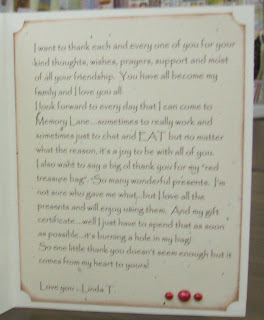 I want to thank each and every one of you for your
kind thoughts, wishes, prayers, support and most
of all your friendship. You have all become my
family and I love you all.
I look forward to every day that I can come to
Memory Lane...sometimes to really work and
sometimes just to chat and EAT but no matter
what the reason, it's a joy to be with all of you.
I also want to say a big thank you for my "red
treasure bag". So many wonderful presents. I'm
not sure who gave me what...but I love all the
presents and will enjoy using them. And my gift
certificate...well I just have to spend that as soon
as possible...it's burning a hole in my bag!
So one little thank you doesn't seem enough but it
comes from my heart to yours!
Love you - Linda T.